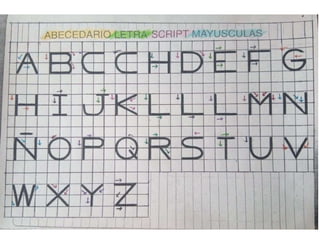 ABECEDARIO LETRA SCRIPT MAYUSCULAS
A B C C H D E F G
H I J K L L L M N
Ñ O P Q R S T U V
W X Y Z